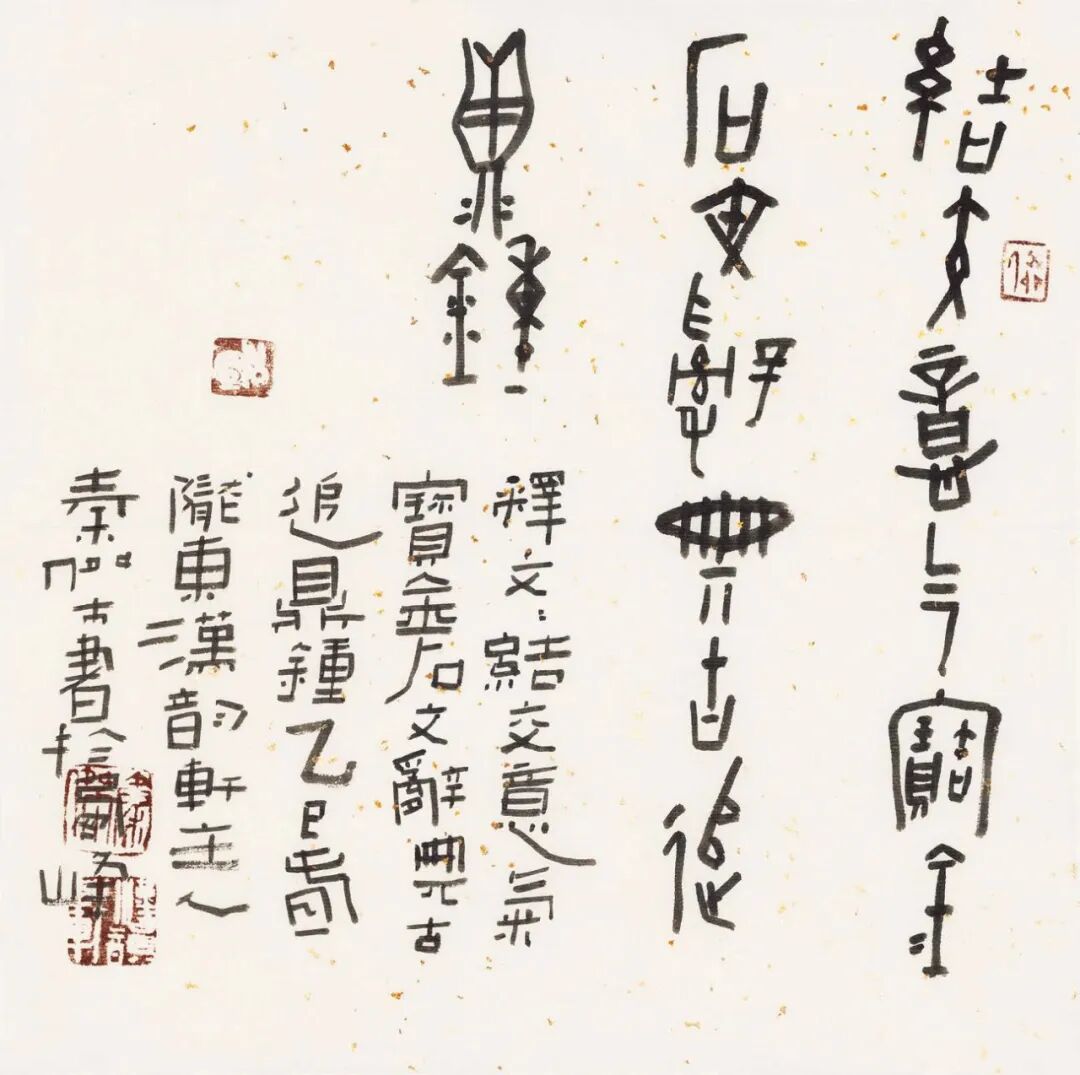 結交意气寶金
石文辭典古追
鼎鍾
釋文：結交意氣
寶金石文辭典古
追鼎鍾乙巳
隴東漢韵軒主人
秦書於